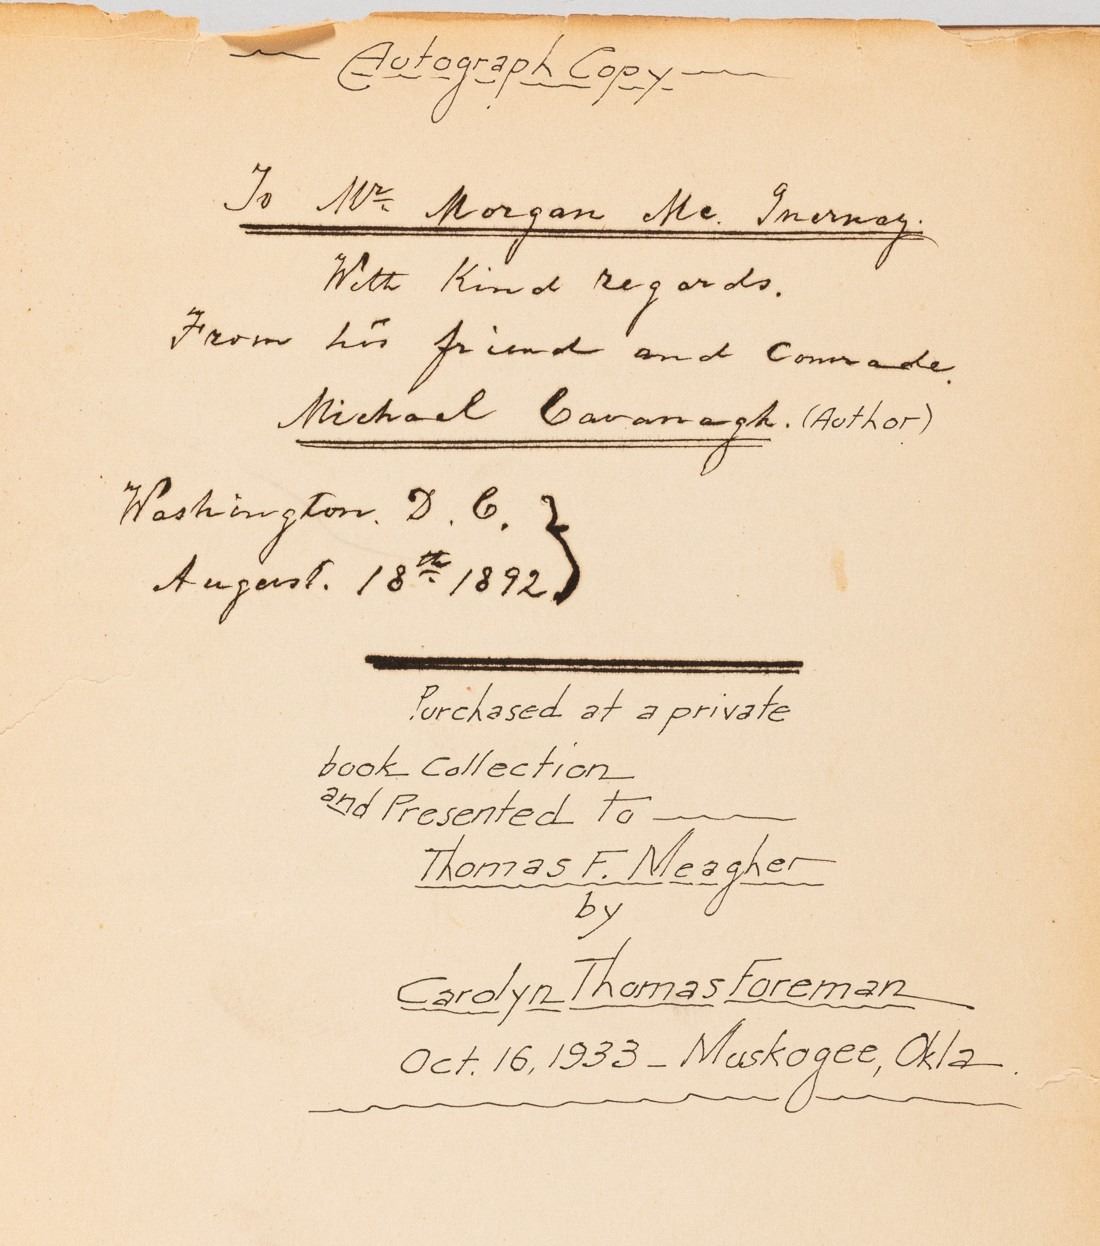 Autograph Copy
To Mr. Morgan Mc. Inernay.
With Kind regards.
From his friend and Comrade.
Michael Cavanagh. (Author)
Washington. D. C. }
August. 18th 1892.
Purchased at a private
book Collection
and Presented To
Thomas F. Meagher
by
Carolyn Thomas Foreman
Oct. 16, 1933 - Muskogee, Okla.